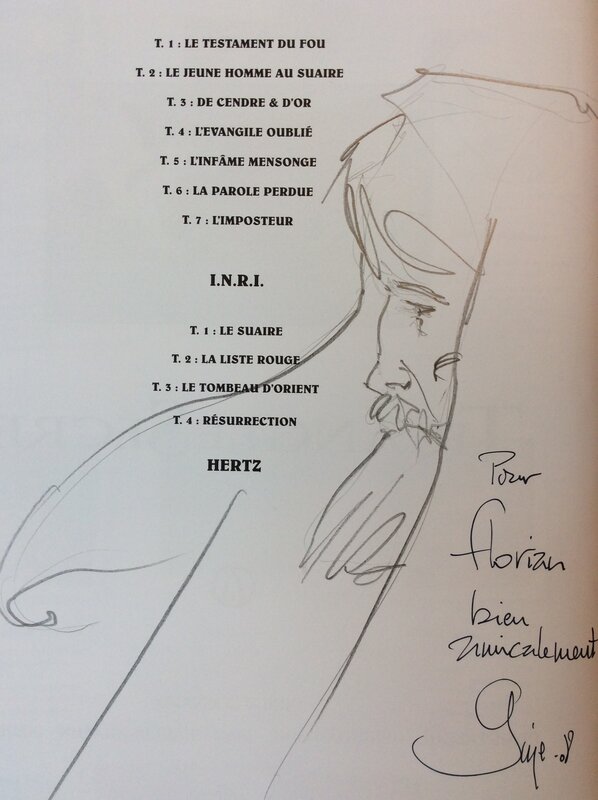 T. 1 : LE TESTAMENT DU FOU
T. 2 : LE JEUNE HOMME AU SUAIRE
T. 3 : DE CENDRE & D'OR
T. 4 : L'EVANGILE OUBLIÉ
T. 5 : L'INFÂME MENSONGE
T. 6 : LA PAROLE PERDUE
T. 7 : L'IMPOSTEUR
I.N.R.I.
T. 1 : LE SUAIRE
T. 2 : LA LISTE ROUGE
T. 3 : LE TOMBEAU D'ORIENT
T. 4 : RÉSURRECTION
HERTZ
Pour
Florian
bien
amicalement